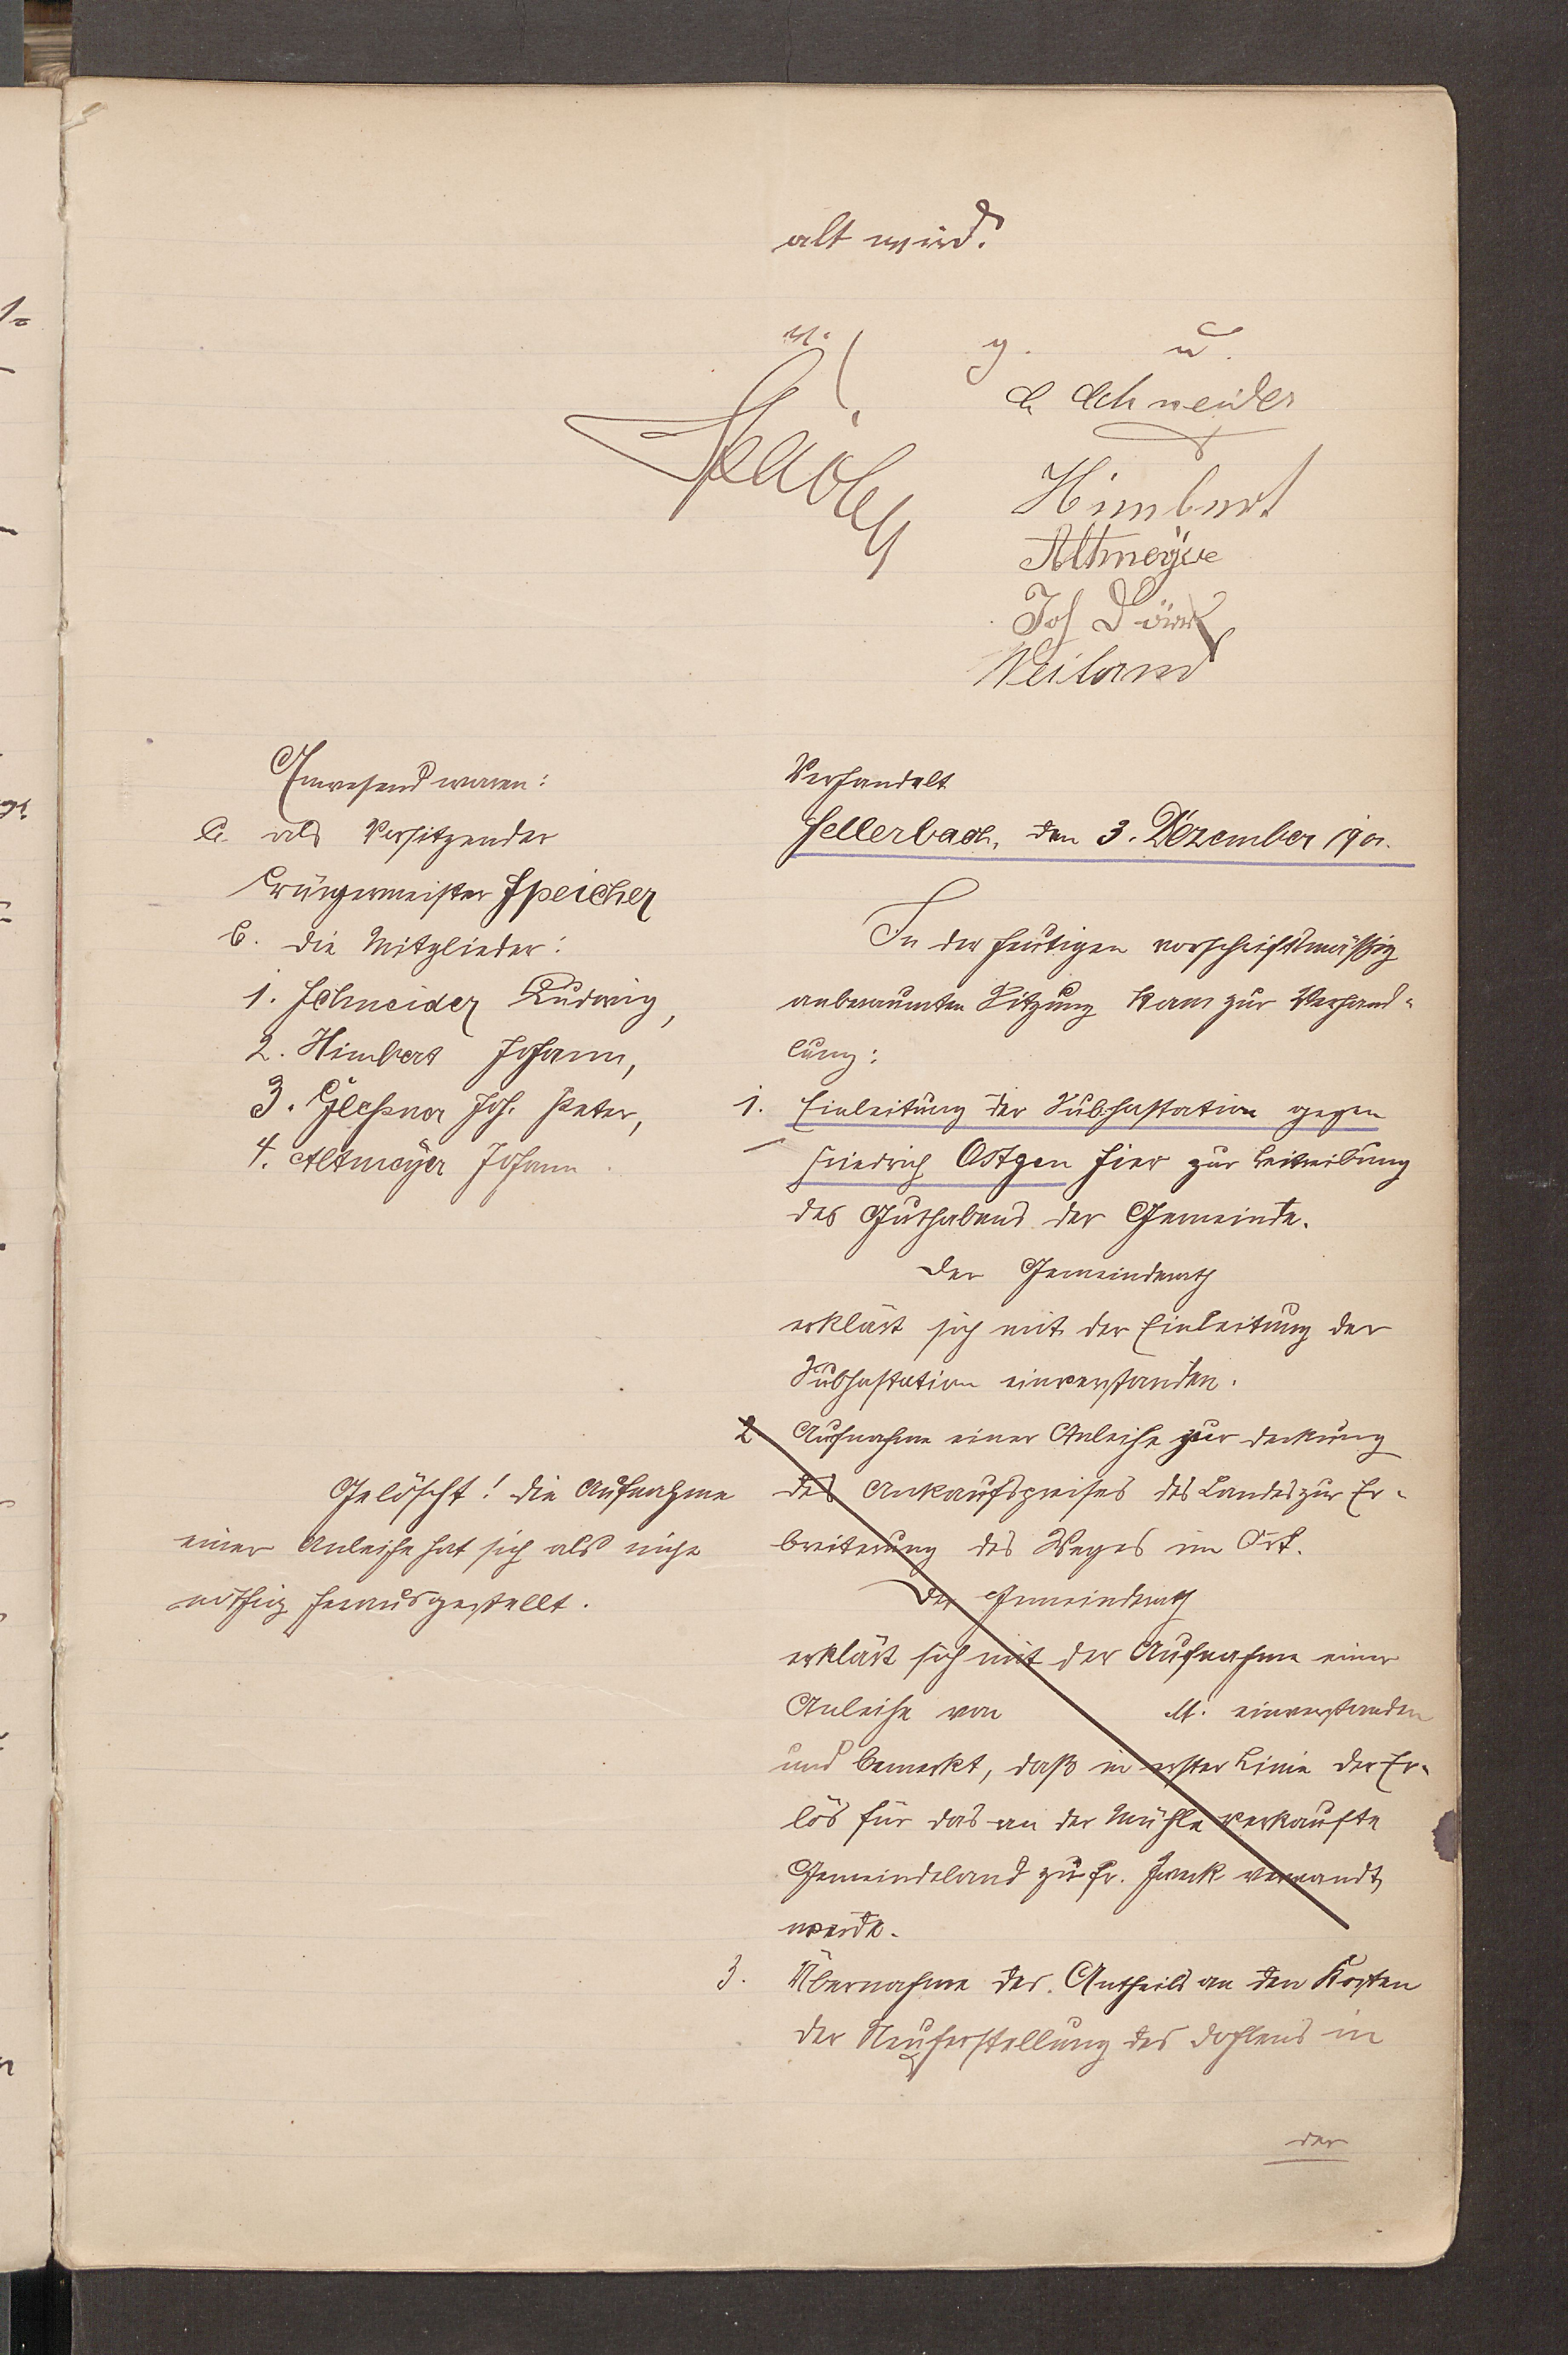 alt wird.
v. g. u.
L Schneider
Himbert
Altmeyer
Joh Dörr
Weiland
Anwesend waren:
a. als Vorsitzender
Bürgermeister Speicher
b. die Mitglieder:
1. Schneider Ludwig,
2. Himbert Johann,
3. Glessner Joh. Peter,
4. Altmeyer Johann.
Gelöscht! Die Aufnahme
einer Anleihe hat sich als nicht
nöthig herausgestellt.
Verhandelt
Hellerbach, den 3. Dezember 1901.
In der heutigen vorschriftsmäßig
anberaumten Sitzung kam zur Verhand-
lung:
1. Einleitung der Subhastation gegen
Friedrich Ostgen hier zur Beitreibung
des Guthabens der Gemeinde.
Der Gemeinderath
erklärt sich mit der Einleitung der
Subhastation einverstanden.
2 Aufnahme einer Anleihe zur Deckung
des Ankaufspreises des Landes zur Er-
breiterung des Weges im Ort.
Der Gemeinderath
erklärt sich mit der Aufnahme einer
Anleihe von M. einverstanden
und bemerkt, daß in erster Linie der Er-
lös für das an der Mühle verkaufte
Gemeindeland zu fr. Zweck verwandt
werde.
3. Übernahme des Antheils an den Kosten
der Neuherstellung des Dohlens in
der